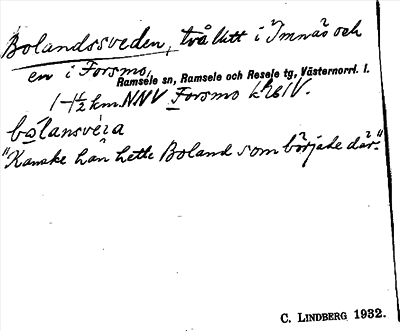 Bolandssveden, två litt i Imnäs och
en i Forsmo,
Ramsele sn, Ramsele och Resele tg, Västernorrl. l.
1-1½ km NNV Forsmo
bolansvéra
"Kanske han hette Boland som började där."
C. LINDBERG 1932.